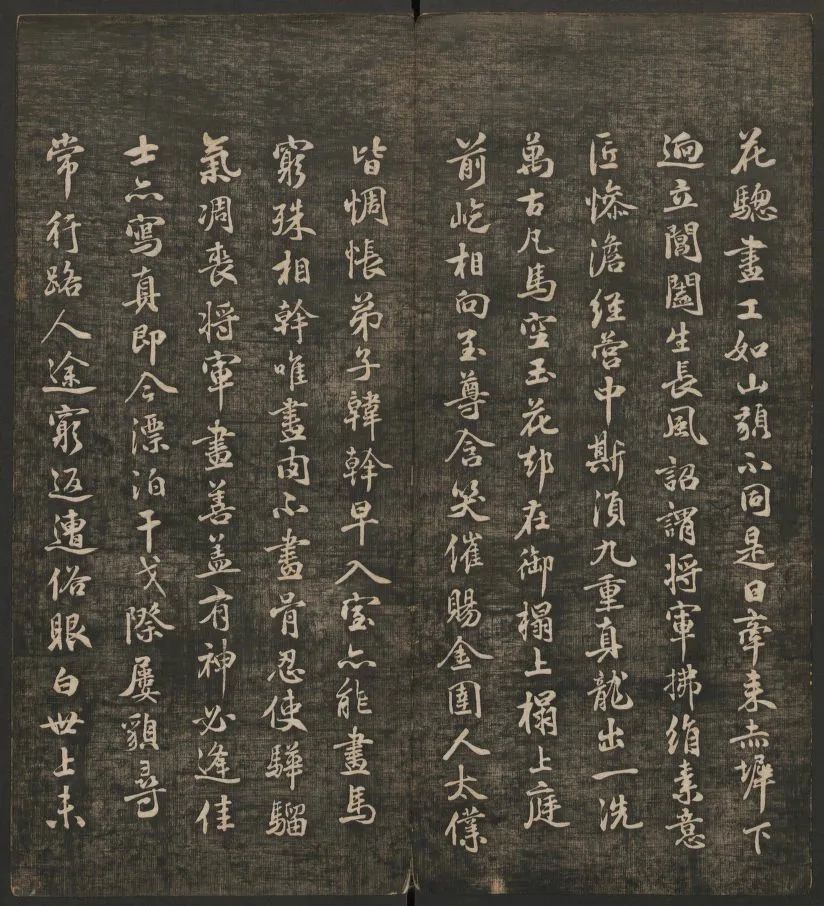 花驄畫工如山貌不同是日牽来赤墀下
逈立閶闔生長風詔謂将軍拂絹素意
匠慘澹經營中斯須九重真龍出一洗
萬古凡馬空玉花却在御榻上榻上庭
前屹相向至尊含笑催賜金圉人太僕
皆惆悵弟子韓幹早入室亦能畫馬
窮殊相幹唯畫肉不畫骨忍使驊騮
氣凋喪将軍畫善盖有神必逢佳
士亦寫真即今漂泊干戈際屢貌尋
常行路人途窮返遭俗眼白世上未